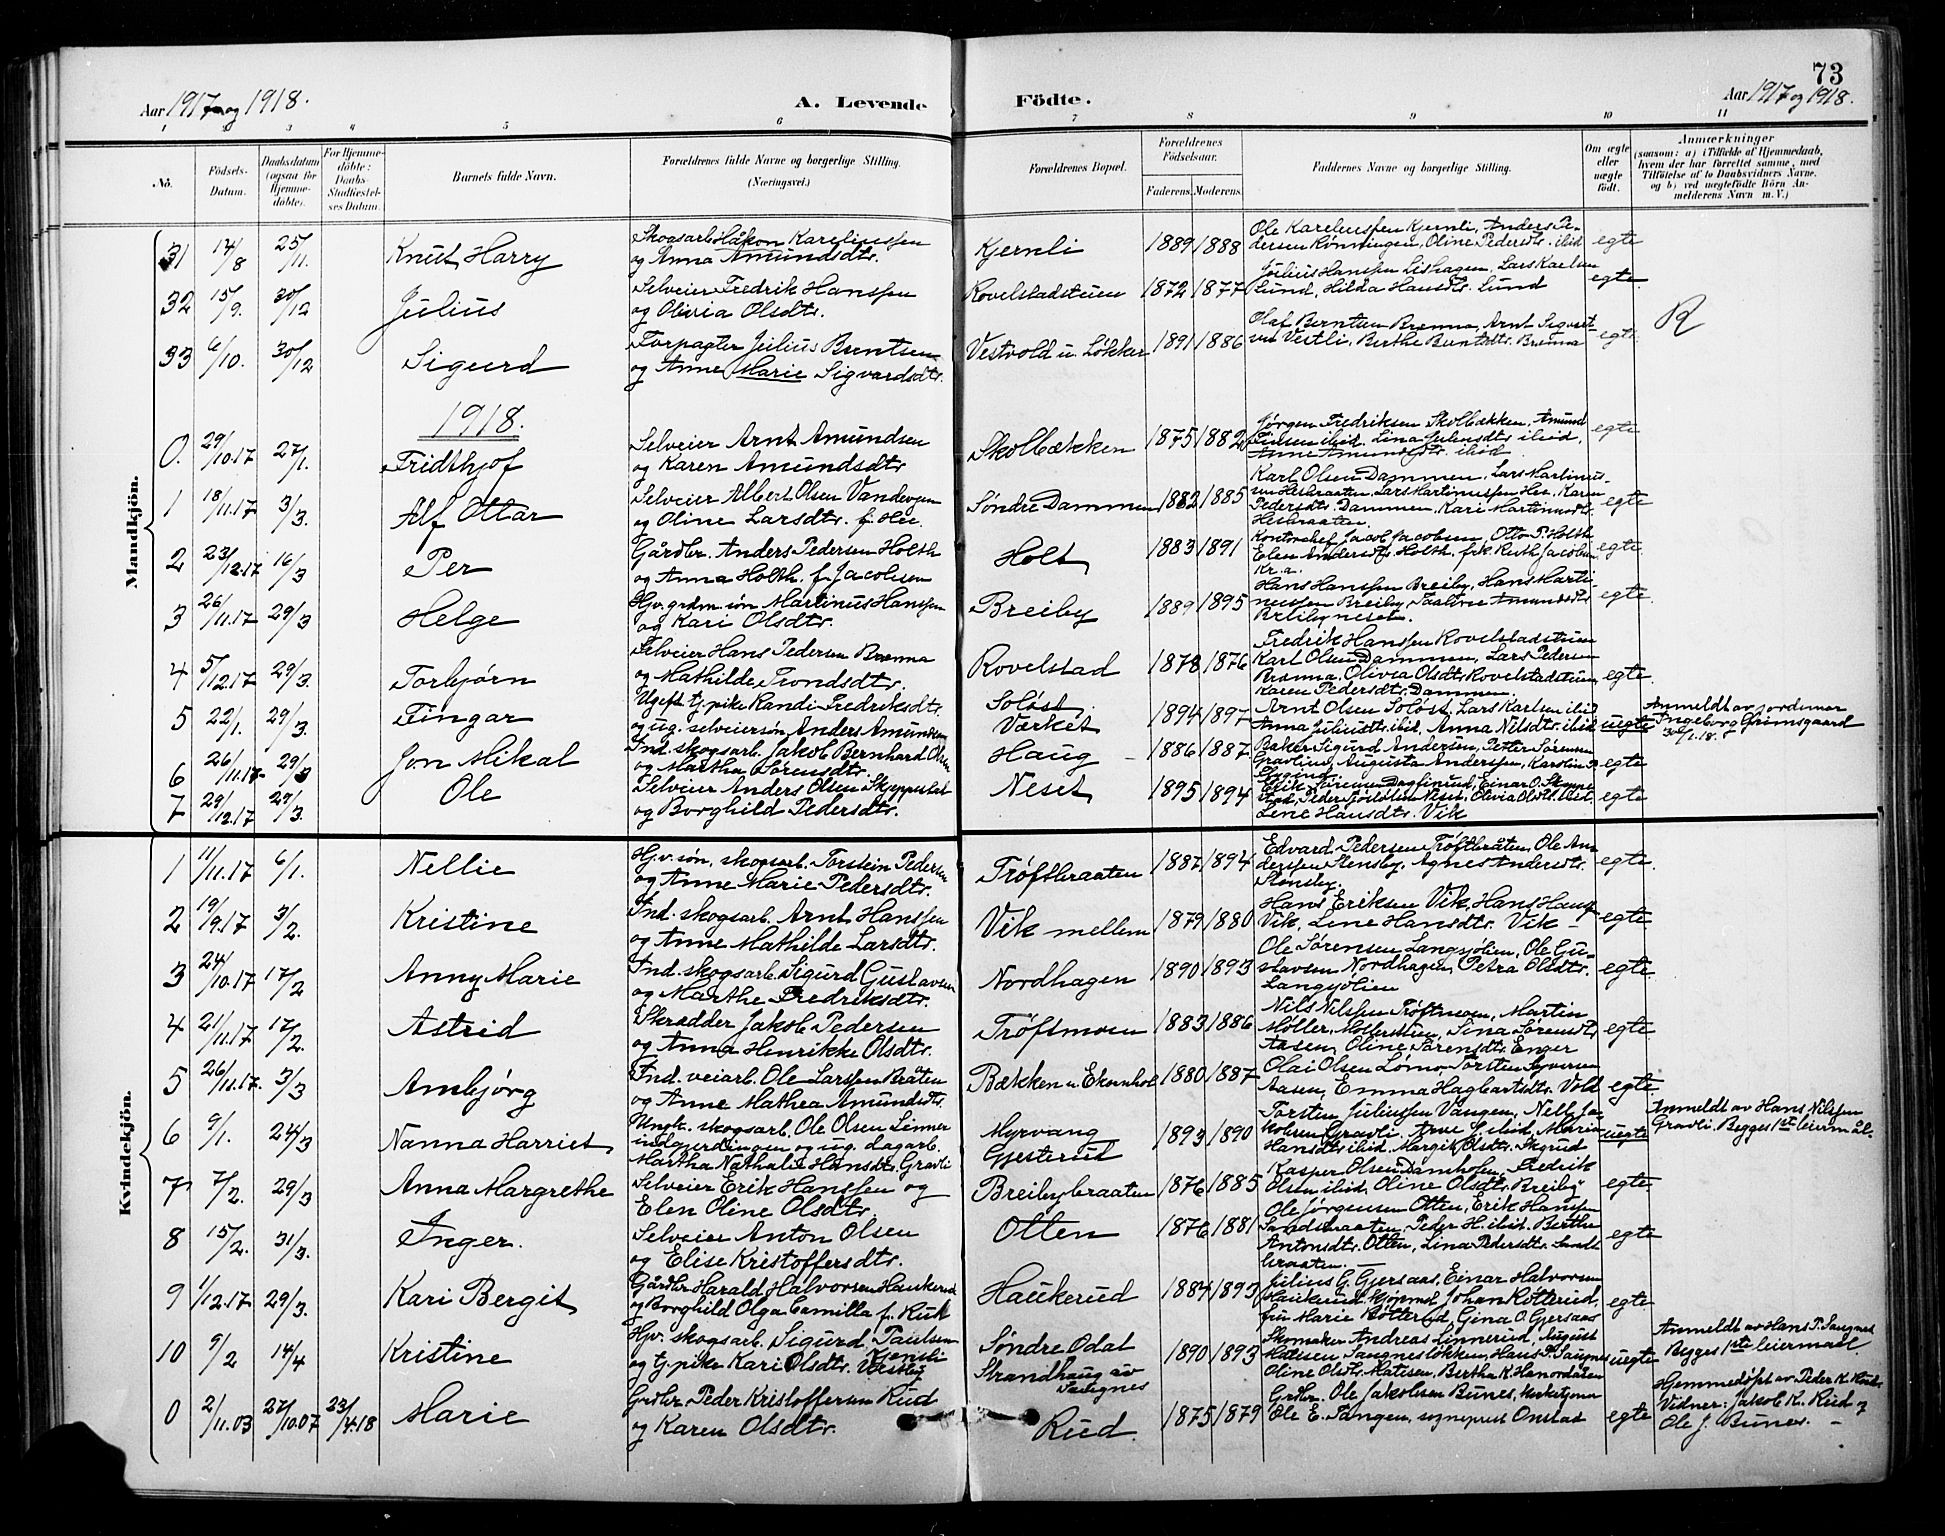 73
Aar 1917 og 1918.
A. Levende Födte.
Aar 1917 og 1918.
1 2 3 4 5 6 7 8 9 10 11
No.
Födsels-Datum.
Daabsdatum (ogsaa for Hjemme-döbte).
For Hjemme-döbte: Daabs Stadfæstel-ses Datum.
Barnets fulde Navn.
Forældrenes fulde Navne og borgerlige Stilling. (Næringsvei.)
Forældrenes Bopæl.
Forældrenes Födselsaar.
Faderens. Moderens.
Faddernes Navne og borgerlige Stilling.
Om ægte eller uægte födt.
Anmærkninger
(saasom: a) i Tilfælde af Hjemmedaab, hvem der har forrettet samme, med Tilföielse af to Daabsvidners Navne, og b) ved uægtefödte Börn An-melderens Navn m. V.)
Mandkjön.
31 14/8 25/11. Knut Harry
Skogsarb Håkon Kareliussen
og Anna Amundsdtr.
Kjernli 1889 1888
Ole Kareliussen Kjernli, Anders Pe-
dersen Rönningen, Oline Pedersdtr. ibid
egte
32 15/9. 30/12 Julius
Selveier Fredrik Hanssen
og Olivia Olsdtr.
Rovelstadstuen 1872 1877
Julius Hanssen Lishagen, Lars Karlsen
Lund, Hilda Hansdtr. Lund
egte
33 6/10. 30/12 Sigurd
Forpagter Julius Berntsen
og Anne Marie Sigvardsdtr.
Vestvold u. Løkker 1891 1886
Olaf Berntsen Brenna, Arnt Sigvart-
sen Vestli, Berthe Berntsdtr. Brenna
egte
R
1918.
0. 29/10.17 27/1. Fridthjof
Selveier Arnt Amundsen
og Karen Amundsdtr
Skolbækken 1875 1882
Jørgen Fredriksen Skolbækken, Amund
ibid. Lina Juliusdtr ibid,
Anne Amundsdtr ibid
egte
1 18/11.17 3/3. Alf Ottar
Selveier Albert Olsen
og Oline Larsdtr. f. Hee.
Søndre Dammen 1882 1885
Karl Olsen Dammen, Lars Martinus-
sen Heebraaten, Lars Martinussen Hee, Karen
Pedersdtr. Dammen, Kari Martinusdtr.
Heebraaten.
egte
2 23/12.17 16/3 Per
Gårdbr. Anders Pedersen Holth
og Anna Holth f. Jacobsen
Holt 1883 1891
Kontorchef Jacob Jacobsen, Otto P. Holth
Elen Andersdtr. Holth, frk Ruth Jacobsen
Kr.a.
egte
3 26/11.17 29/3 Helge
Hjv. grdm. søn Martinus Hanssen
og Kari Olsdtr.
Breiby 1889 1895
Hans Hanssen Breiby, Hans Marti-
nussen Breiby, Amundsdtr
Breibyneset.
egte
4 5/12.17 29/3. Torbjørn
Selveier Hans Pedersen Brenna
og Mathilde Trondsdtr.
Rovelstad 1878 1876
Fredrik Hanssen Rovelstadstuen
Karl Olsen Dammen, Lars Pedersen
Brenna, Olivia Olsdtr Rovelstadstuen,
Karen Pedersdtr. Dammen.
egte.
5 22/1. 29/3 Fingar
Ugift tj. pike Randi Fredriksdtr.
og ug. selveiersøn Anders Amundsen
Soløst
Værket 1894 1897
Arnt Olsen Soløst, Lars Karlsen ibid
Anna Juliusdtr. ibid. Anna Nilsdtr. ibid
uegte
Anmeldt av jordemor
Ingeborg Grimsgaard
30/1.18.
6 26/11.17 29/3 Jon Mikal
Ind. skogsarb. Jakob Bernhard Olsen
og Martha Sørensdtr.
Haug 1886 1887
Baker Sigurd Andersen, Petter Sørensen
Gravlien, Augusta Anderssen, Karoline
egte
7 29/12.17 29/3. Ole
Selveier Anders Olsen
og Borghild Pedersdtr.
Neset 1895 1894
Erik Dagfinrud, Einar O.
Neset, Olivia Olsdtr. ibid
Lene Hansdtr. Vik
egte
Kvindekjön.
1 11/11.17 6/1. Nellie
Hjv. søn, skogsarb. Torstein Pedersen
og Anne Marie Pedersdtr.
Trøftbraaten 1887 1894
Edvard Pedersen Trøftbråten, Ole An-
derssen Stensby, Agnes Andersdtr.
Stensby.
egte
2 19/9.17 3/2. Kristine
Ind. skogsarb. Arnt Hanssen
og Anne Mathilde Larsdtr.
Vik mellem 1879 1880
Hans Eriksen Vik, Hans
Vik, Lene Hansdtr. Vik
egte
3 24/10.17 17/2 Anny Marie
Ind. skogsarb. Sigurd Gustavsen
og Marthe Fredriksdtr.
Nordhagen 1890 1893
Ole Sørensen Langsjølien, Ole Gu-
stavsen Nordhagen, Petra Olsdtr.
Langsjölien
egte
4 21/11.17 17/2. Astrid
Skrædder Jakob Pedersen
og Anna Henrikke Olsdtr.
Trøftmoen 1883 1886
Nils Nilssen Trøftmoen, Martin
Møller, Møllerstuen, Lina Sørensdtr
Aasen, Oline Sørensdtr. Enger
egte
5 26/11.17. 3/3 Ambjørg
Ind. veiarb. Ole Larssen Bråten
og Anne Mathea Amundsdtr.
Bækken u. Ekornhol 1880 1887
Olai Olsen Lømo, Torsten
Aasen, Emma Hagbartsdtr. Vold
egte
6 9/1. 24/3 Nanna Harriet
Ungk. skogsarb. Ole Olsen
og ug. dagarb.
Martha Nathalie Hansdtr. Gravli
Myrvang
Gjesterud 1893 1890
Torsten Juliussen Vangen, Nell Ja-
kobsen Gravli, Arve J. ibid, Maria
Hansdtr ibid. Margit Olsdtr. Skgrud
uegte
Anmeldt av Hans Nilssen
Gravli. Begges 1ste leiermål.
7 7/2. 29/3 Anna Margrethe
Selveier Erik Hanssen og
Elen Oline Olsdtr.
Breibybraaten 1876 1885
Kasper Olsen Damhofen, Fredrik
Olsen ibid. Oline Olsdtr. Breiby
egte
8 15/2. 31/3. Inger.
Selveier Anton Olsen
og Elise Kristoffersdtr.
Otten 1876 1881
Ole Jørgensen Otten, Erik Hanssen
Sandbraaten, Peder H. ibid. Berthe
Antonsdtr. Otten, Lina Pedersdtr. Sand-
braaten.
egte
9 1/12.17 29/3. Kari Bergit
Gårdbr Harald Halvorsen Haukerud
og Borghild Olga Camilla f. Ruk
Haukerud 1884 1893
Julius G. Gjersaas, Einar Halvorsen
Haukerud, kjøpmd. Johan Røtterud,
fru Marie Røtterud, Gina O. Gjersaas
egte
10 9/2 14/4 Kristine
Hjv. skogsarb. Sigurd Paulsen
og tj. pike Kari Olsdtr.
Søndre Odal
Strandhaug av
Saugnes 1890 1893
Skomaker Andreas Linnerud, August
Saugnesløkken, Hans P. Saugnes
Oline Olsdtr. Matisen, Bertha K. Hanordåten
uegte
Anmeldt av Hans P. Saugnes
Begges 1ste leiermaal
0 2/11.03 27/10.07 23/4.18 Marie
Grdbr. Peder Kristoffersen Rud
og Karen Olsdtr.
Rud. 1875 1879
Grdbr. Ole Jakobsen Bunes,
Ole E. Tangen, sogneprest Onstad
egte
Hjemmedøpt av Peder K. Rud.
Vidner: Jakob K. Rud og
Ole J. Bunes.